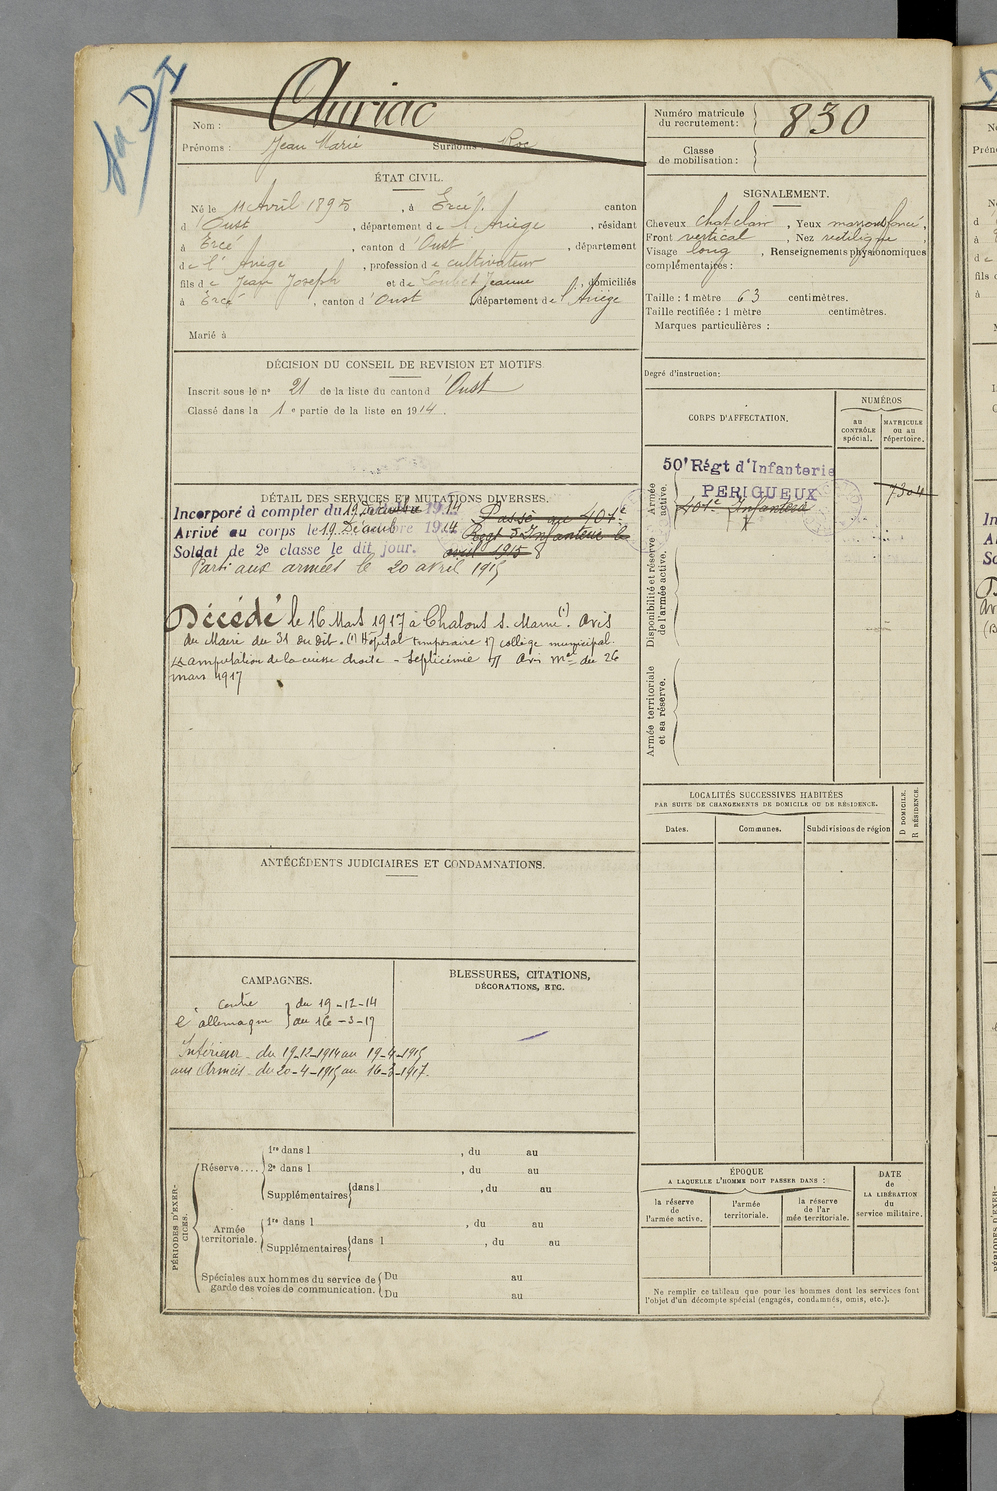 Nom : Auriac
Prénoms : Jean Marie Surnoms : Roc
Numéro matricule du recrutement : 830
Classe de mobilisation :
ÉTAT CIVIL.
Né le 11 Avril 1895, à Ercé canton
d'Oust, département de l'Ariège, résidant
à Ercé, canton d'Oust, département
de l'Ariège, profession de cultivateur
fils de Jean Joseph et de Loubet Jeanne, domiciliés
à Ercé, canton d'Oust, département de l'Ariège
Marié à
SIGNALEMENT.
Cheveux chat clair, Yeux marrons foncé,
Front vertical, Nez rectiligne,
Visage long, Renseignements physionomiques
complémentaires :
Taille : 1 mètre 63 centimètres.
Taille rectifiée : 1 mètre centimètres.
Marques particulières :
Degré d'instruction :
DÉCISION DU CONSEIL DE REVISION ET MOTIFS
Inscrit sous le n° 21 de la liste du canton d'Oust
Classé dans la 1e partie de la liste en 1914.
CORPS D'AFFECTATION.
NUMÉROS
au CONTRÔLE spécial.
MATRICULE ou au répertoire.
Armée active.
50e Régt d'Infanterie
PERIGUEUX
401e Infanterie
7304
Disponibilité et réserve de l'armée active.
Armée territoriale et sa réserve.
DÉTAIL DES SERVICES ET MUTATIONS DIVERSES.
Incorporé à compter du 19 Décembre 1914
Arrivé au corps le 19 Décembre 1914
Soldat de 2e classe le dit jour.
Passé au 401e
Regt d'Infanterie le
avril 1915
Parti aux armées le 20 avril 1915
Décédé le 16 Mars 1917 à Chalons s. Marne (1). Avis
du Maire du 31 du dit. (1) Hopital temporaire 17 collège municipal.
amputation de la cuisse droite - Septicémie Avis mel du 26
mars 1917
ANTÉCÉDENTS JUDICIAIRES ET CONDAMNATIONS.
LOCALITÉS SUCCESSIVES HABITÉES
PAR SUITE DE CHANGEMENTS DE DOMICILE OU DE RÉSIDENCE.
Dates.
Communes.
Subdivisions de région
D DOMICILE.
R RÉSIDENCE.
CAMPAGNES.
contre l'allemagne
du 19-12-14
au 16-3-17
Intérieur - du 19-12-1914 au 19-4-1915
aux Armées - du 20-4-1915 au 16-3-1917.
BLESSURES, CITATIONS,
DÉCORATIONS, ETC.
PÉRIODES D'EXERCICES.
Réserve....
1re dans l , du au
2e dans l , du au
Supplémentaires dans l , du au
Armée territoriale.
1re dans l , du au
Supplémentaires dans l , du au
Spéciales aux hommes du service de garde des voies de communication.
Du au
Du au
ÉPOQUE
A LAQUELLE L'HOMME DOIT PASSER DANS :
la réserve de l'armée active.
l'armée territoriale.
la réserve de l'armée territoriale.
DATE de LA LIBÉRATION du service militaire.
Ne remplir ce tableau que pour les hommes dont les services font
l'objet d'un décompte spécial (engagés, condamnés, omis, etc.).